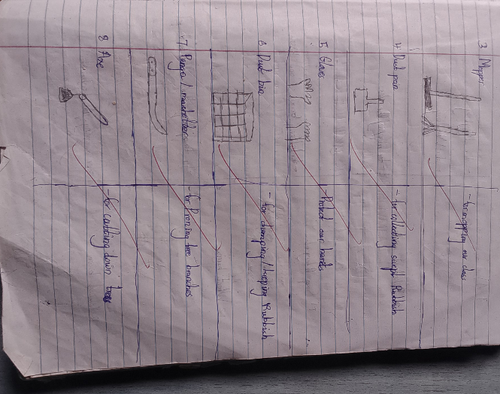 3 Mopper
- for mopping the class
4 Dust pan
- for collecting swept Rubbish
5 Gloves
Protect our hands
6 Dust bin
- for dumping / keeping Rubbish
7 Panga /
- for Pruning tree branches
8 Axe
- for cutting down trees